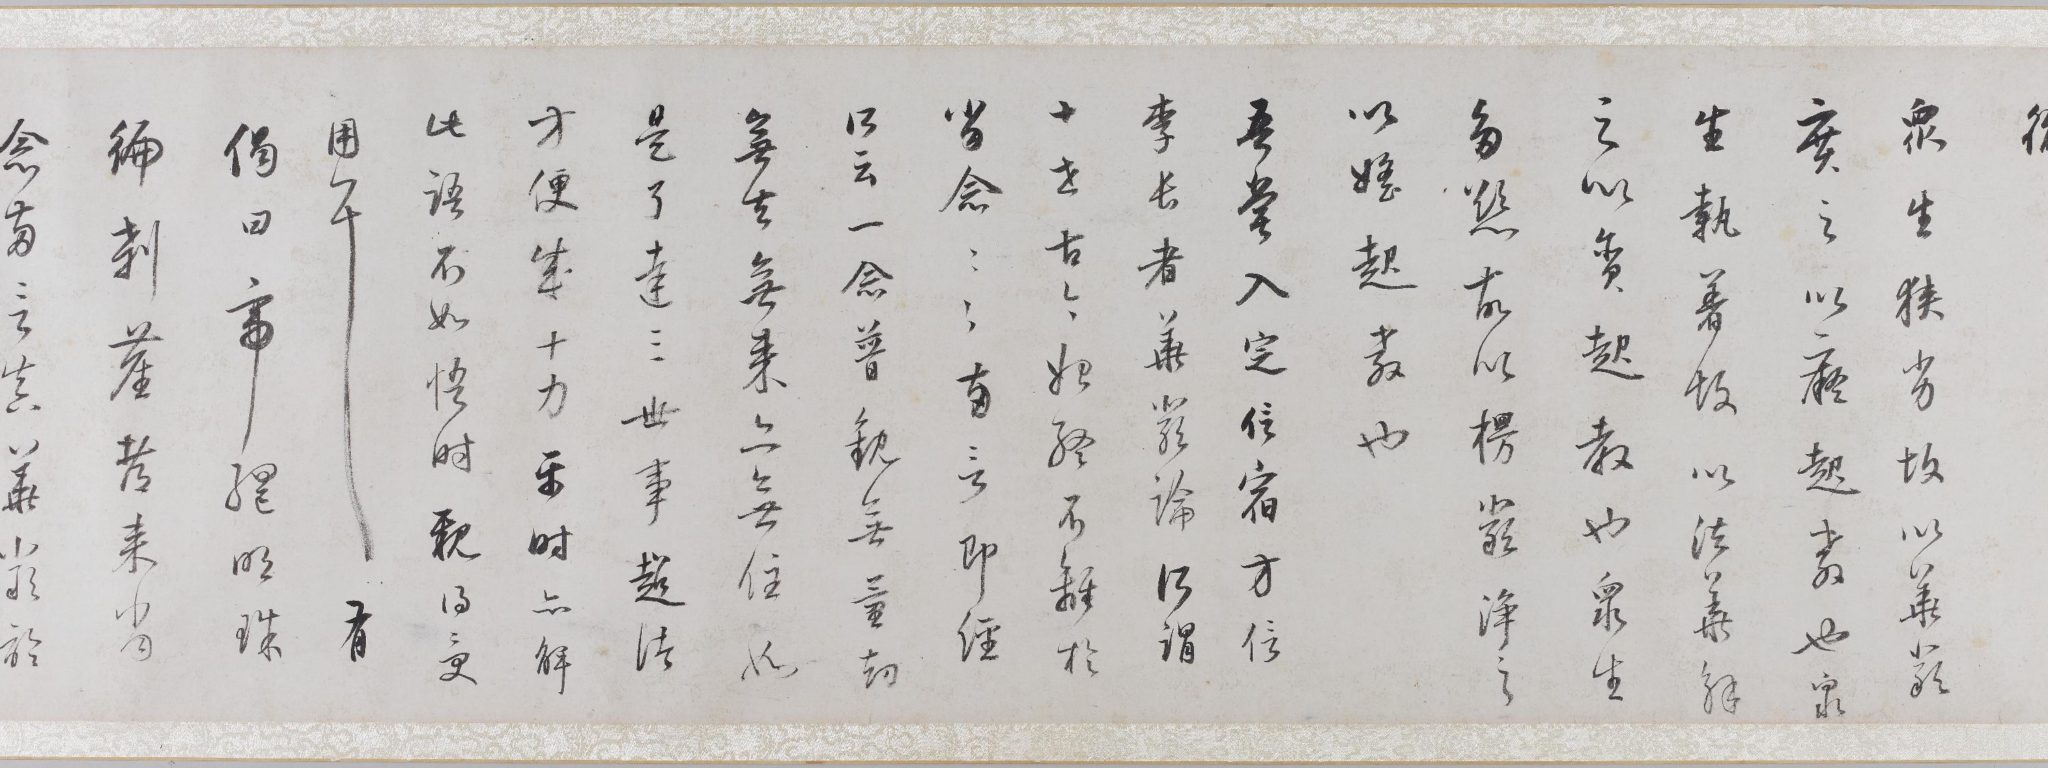 眾生狹劣故以華嚴
廣之以癡起教也眾
生執著故以法華解
之以貪起教也眾生
多慾故以楞嚴淨之
以婬起教也
吾嘗入定信宿方信
李長者華嚴論所謂
十世古今始終不離於
當念〻〻兩言即經
所云一念普觀無量劫
無去無來亦無住如
是了達三世事超諸
方便成十力平時亦解
此語不如悟時親得受
用耳 有
偈曰帝網明珠
徧剎塵都來當
念兩言真華嚴於